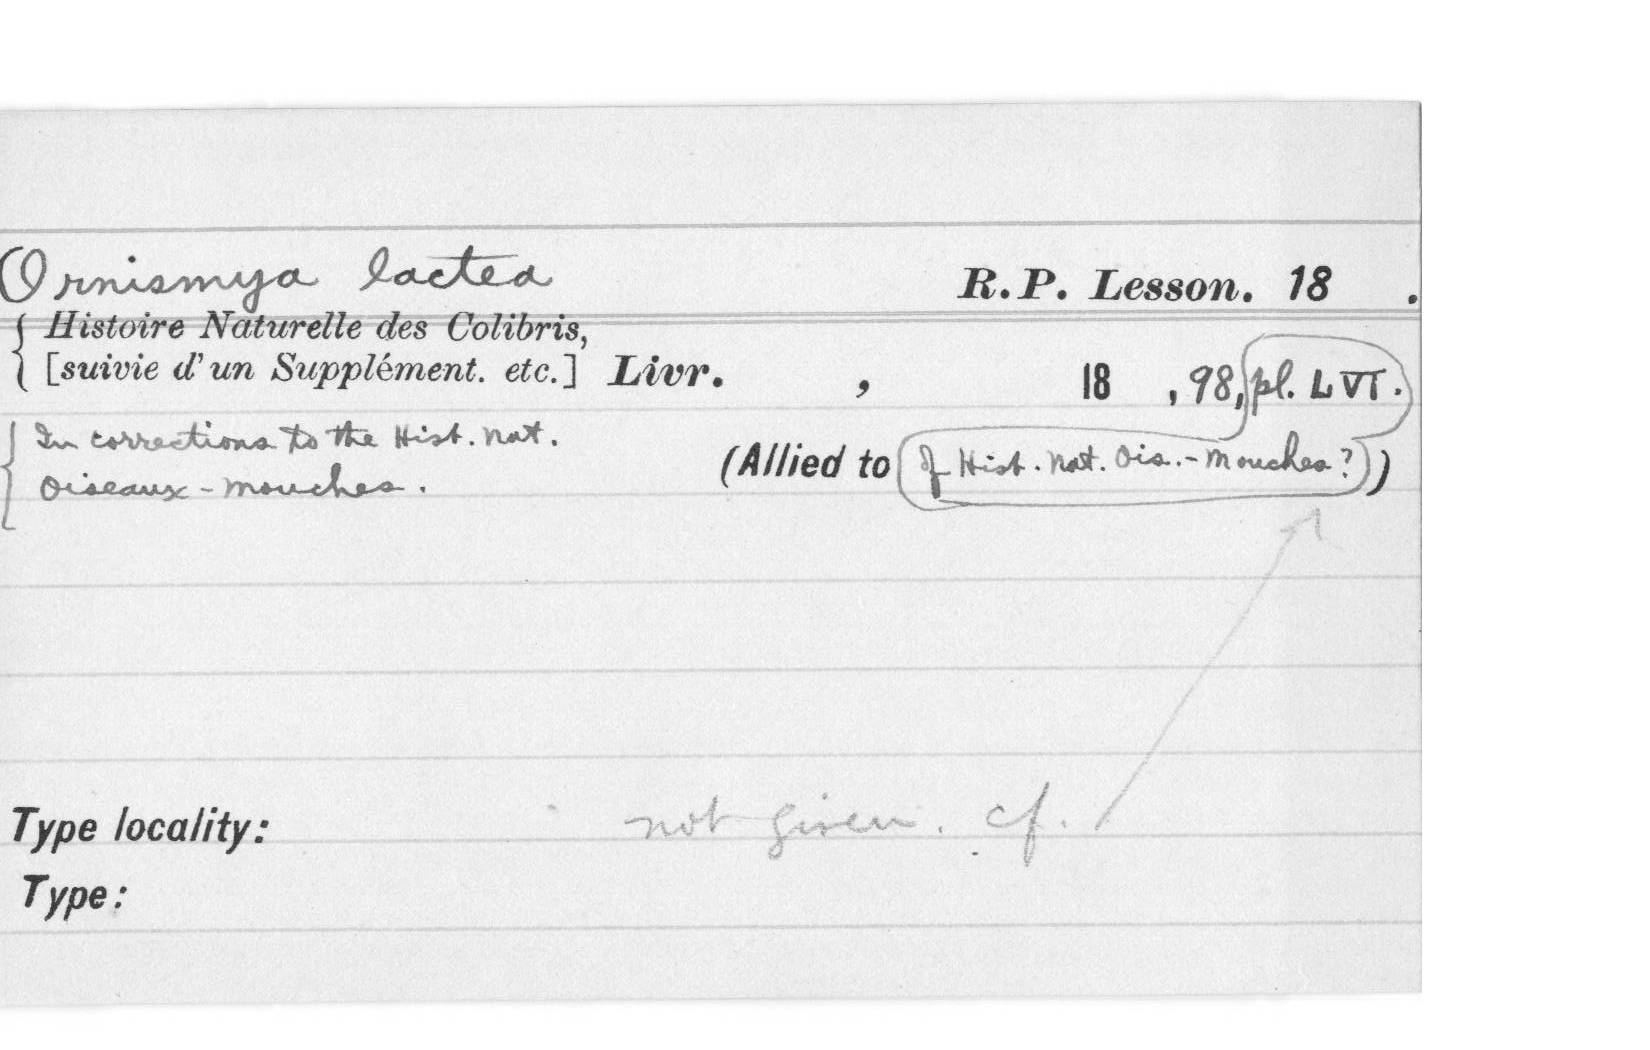 Ornismya lactea R.P. Lesson. 18 .
Histoire Naturelle des Colibris,
[suivie d'un Supplément. etc.] Livr. , 18 , 98, pl. LVI.
In corrections to the Hist. Nat.
Oiseaux-mouches.
(Allied to of Hist. Nat. Ois.-Mouches?)
Type locality: not given. cf.
Type: